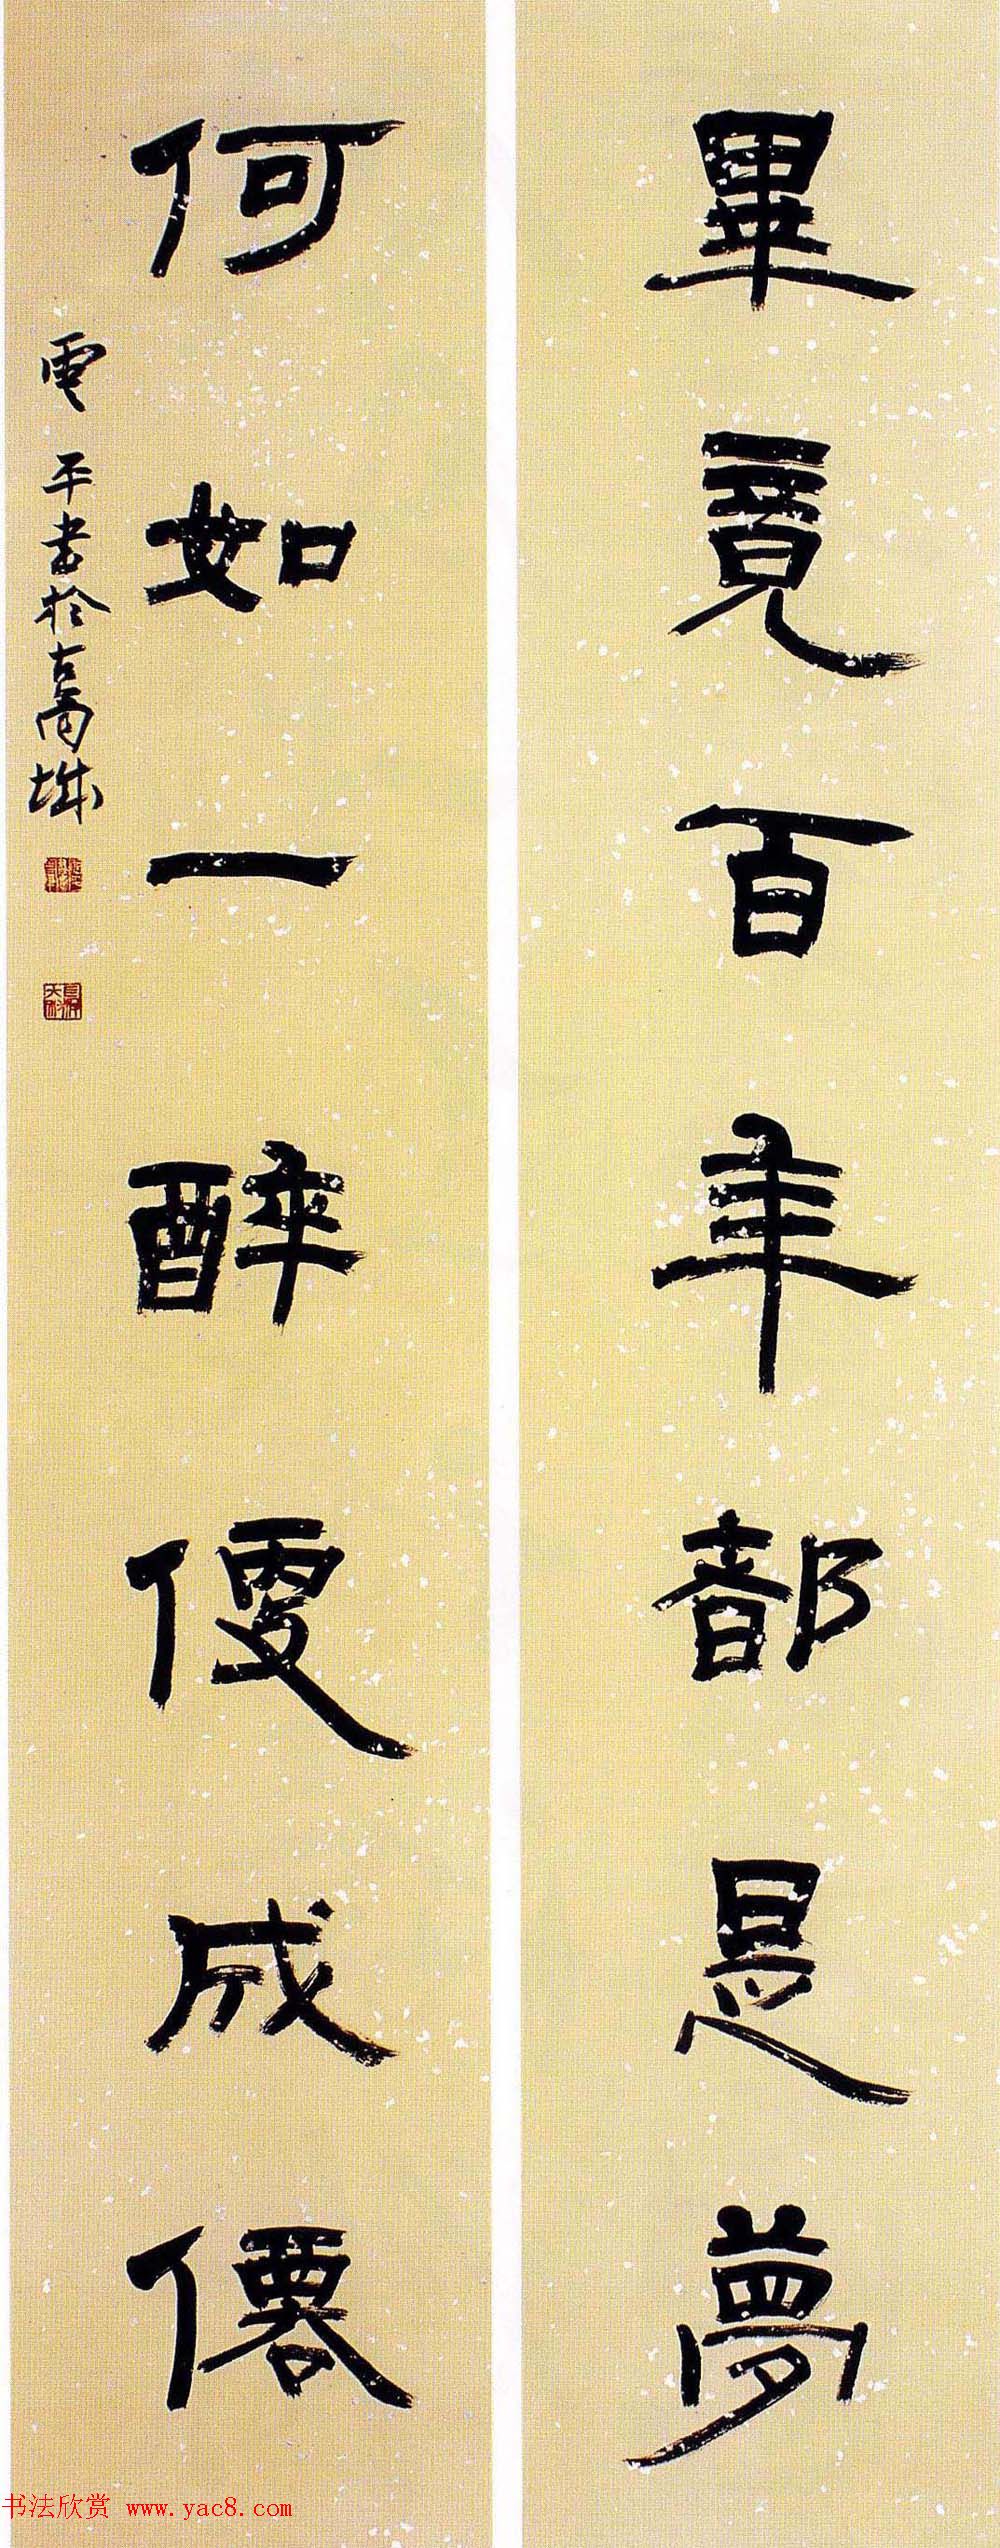 畢竟百年都是夢
何如一醉便成僊
雲平書於古高城
书法欣赏 www.yac8.com